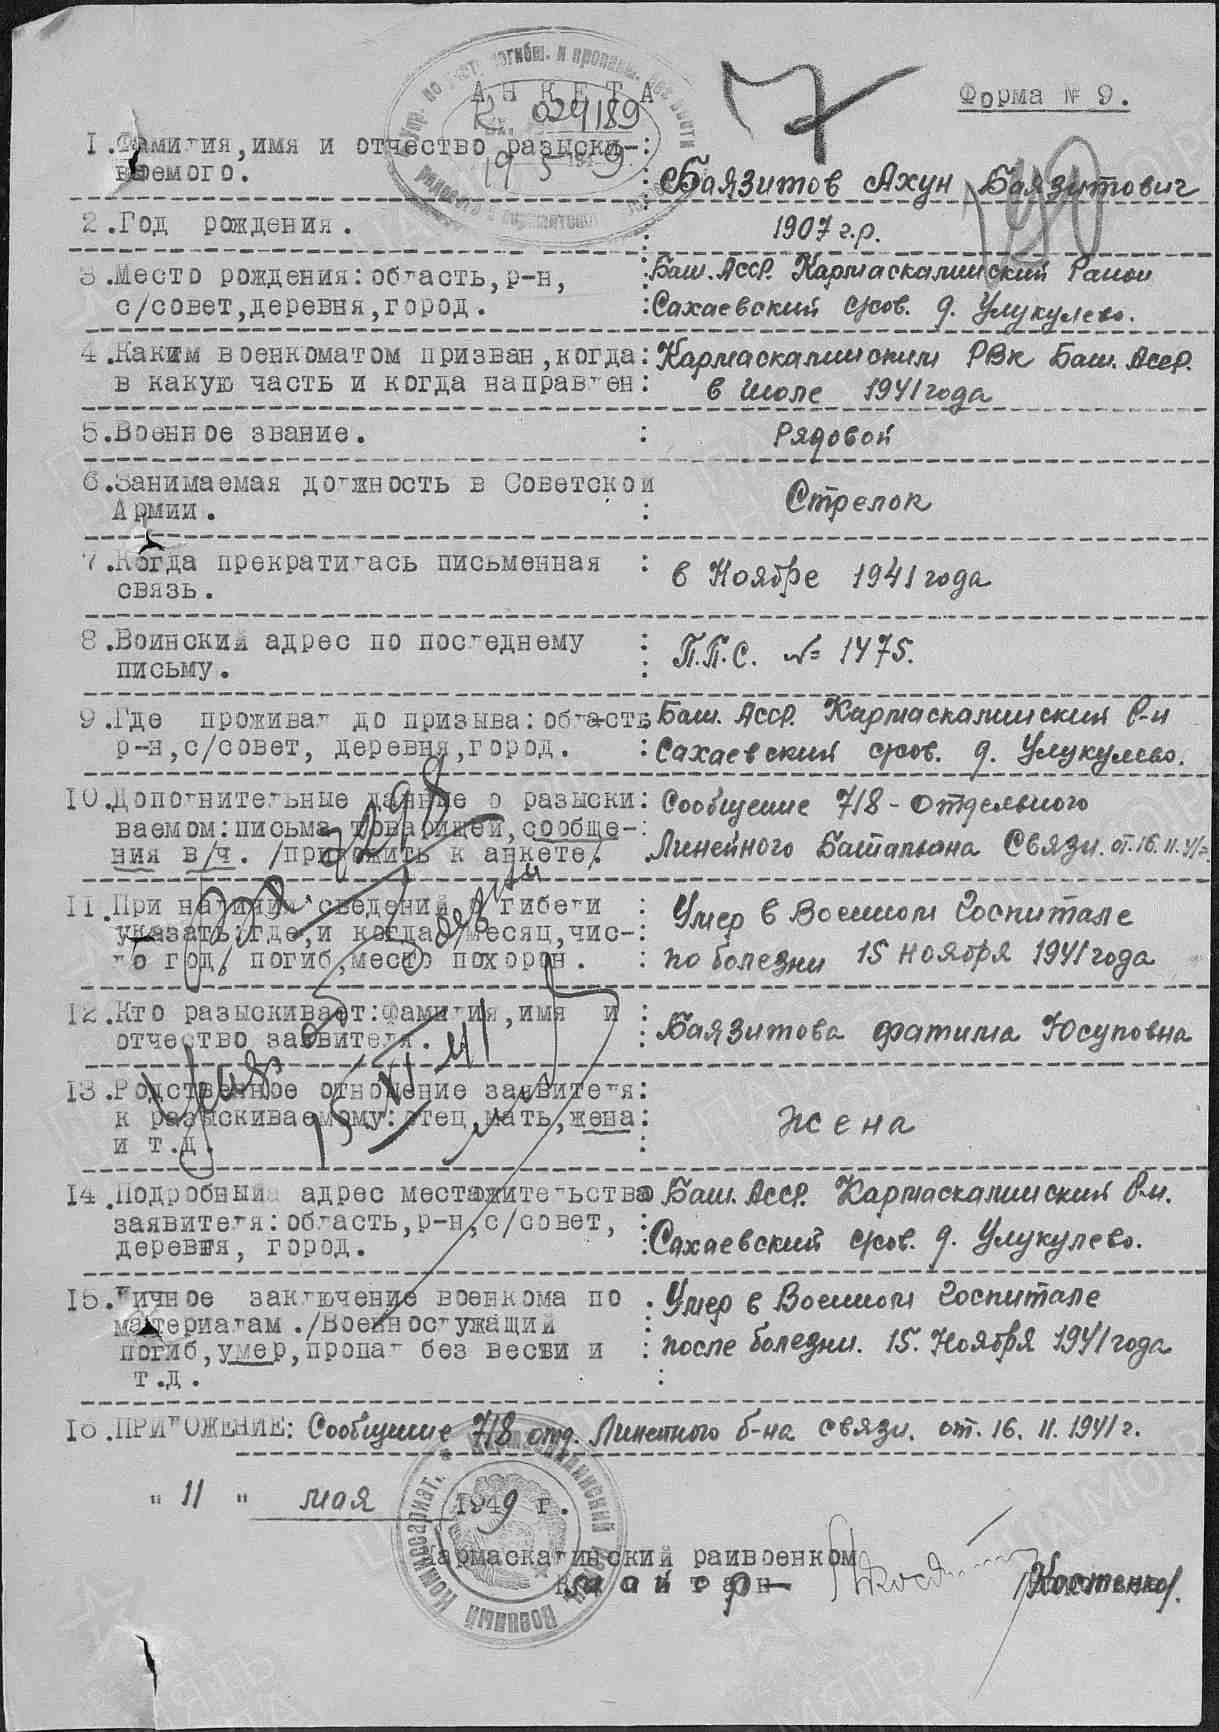 АНКЕТА
Форма № 9.
Вх. 029189
19 5 1949
1.Фамилия,имя и отчество разыски-: Баязитов Ахун Баязитович
ваемого.
2.Год рождения. : 1907 г.р.
3.Место рождения:область,р-н, : Баш. Асср. Кармаскалинский Район
с/совет,деревня,город. : Сахаевский с/сов. д. Улукулево.
4.Каким военкоматом призван,когда: Кармаскалинским РВк Баш. Асср.
в какую часть и когда направлен: в Июле 1941 года
5.Военное звание. : Рядовой
6.Занимаемая должность в Советской
Армии. : Стрелок
7.Когда прекратилась письменная : в Ноябре 1941 года
связь.
8.Воинский адрес по последнему : П.П.С. № 1475.
письму. :
9.Где проживал до призыва:область Баш. Асср. Кармаскалинский р-н
р-н,с/совет, деревня,город. : Сахаевский с/сов. д. Улукулево.
10.Дополнительные данные о разыски: Сообщение 718 - отдельного
ваемом:письма товарищей,сообще-: Линейного Баталиона Связи. от. 16. 11. 41 г.
ния в/ч. /приложить к анкете/.
11.При наличии сведений о гибели : Умер в Военном Госпитале
указать:где,и когда/месяц,чис-: по болезни 15 ноября 1941 года
ло год, погиб,место похорон. :
12.Кто разыскивает:фамилия,имя и : Баязитова Фатима Юсуповна
отчество заявителя. :
13.Родственное отношение заявителя:
к разыскиваемому:отец,мать,жена: Жена
и т.д. :
14.Подробный адрес местожительства Баш. Асср. Кармаскалинский р-н.
заявителя:область,р-н,с/совет, : Сахаевский с/сов. д. Улукулево.
деревня, город. :
15.Личное заключение военкома по : Умер в Военном Госпитале
материалам./Военнослужащий : после болезни. 15. Ноября 1941 года
погиб,умер,пропал без вести и :
т.д. :
16.ПРИЛОЖЕНИЕ: Сообщение 718 отд. Линейного б-на связи. от. 16. 11. 1941 г.
" 11 " мая 1949 г.
Кармаскалинский райвоенком
майор
/Костенко/.
15 XI 41
Военный Комиссариат.